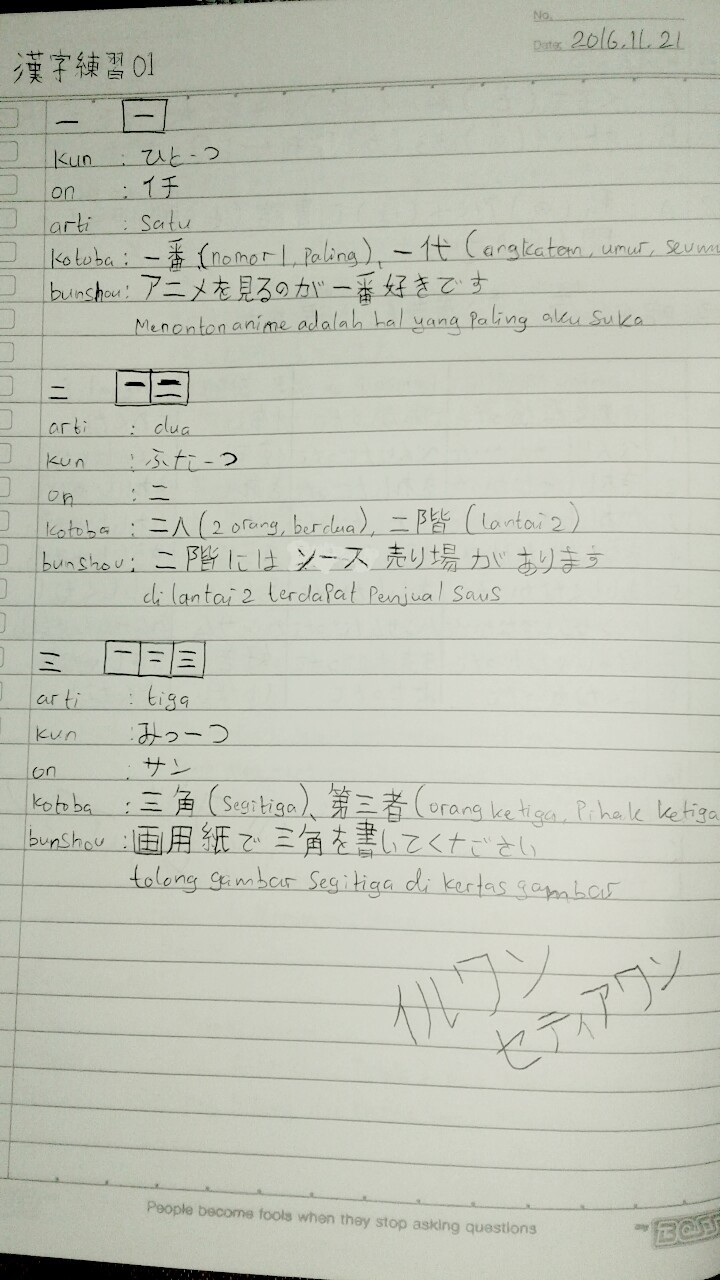 No.
Date: 2016.11.21
漢字練習01
一 一
kun : ひと-つ
on : イチ
arti : satu
kotoba : 一番 (nomor 1, paling), 一代 (angkatan, umur,
bunshou: アニメを見るのが一番好きです
Menonton anime adalah hal yang paling aku suka
二 一二
arti : dua
kun : ふた-つ
on : ニ
kotoba : 二人 (2 orang, berdua), 二階 (lantai 2)
bunshou: 二階にはソース売り場があります
di lantai 2 terdapat penjual saus
三 一二三
arti : tiga
kun : みっ-つ
on : サン
kotoba : 三角 (segitiga)、第三者 (orang ketiga, pihak ketiga
bunshou : 画用紙で三角を書いてください
tolong gambar segitiga di kertas gambar
イルワン
セティアワン
People become fools when they stop asking questions